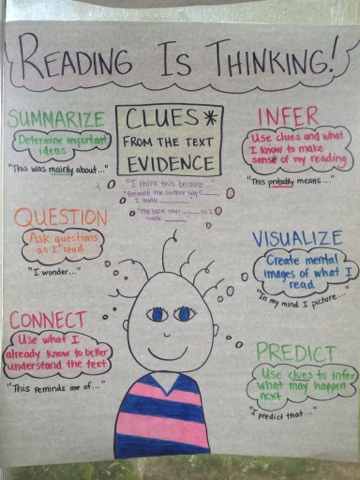 READING IS THINKING!
SUMMARIZE
Determine important
ideas
"This was mainly about..."
CLUES*
FROM THE TEXT
EVIDENCE
"I think this because...
"Because the author says ____
I think ____"
"The book says ____ so I
think ____"
INFER
Use clues and what
I know to make
sense of my reading
"This probably means..."
QUESTION
Ask questions
as I read
"I wonder..."
VISUALIZE
Create mental
images of what I
read
"In my mind I picture..."
CONNECT
Use what I
already know to better
understand the text
"This reminds me of..."
PREDICT
Use clues to infer
what may happen
next
"I predict that..."